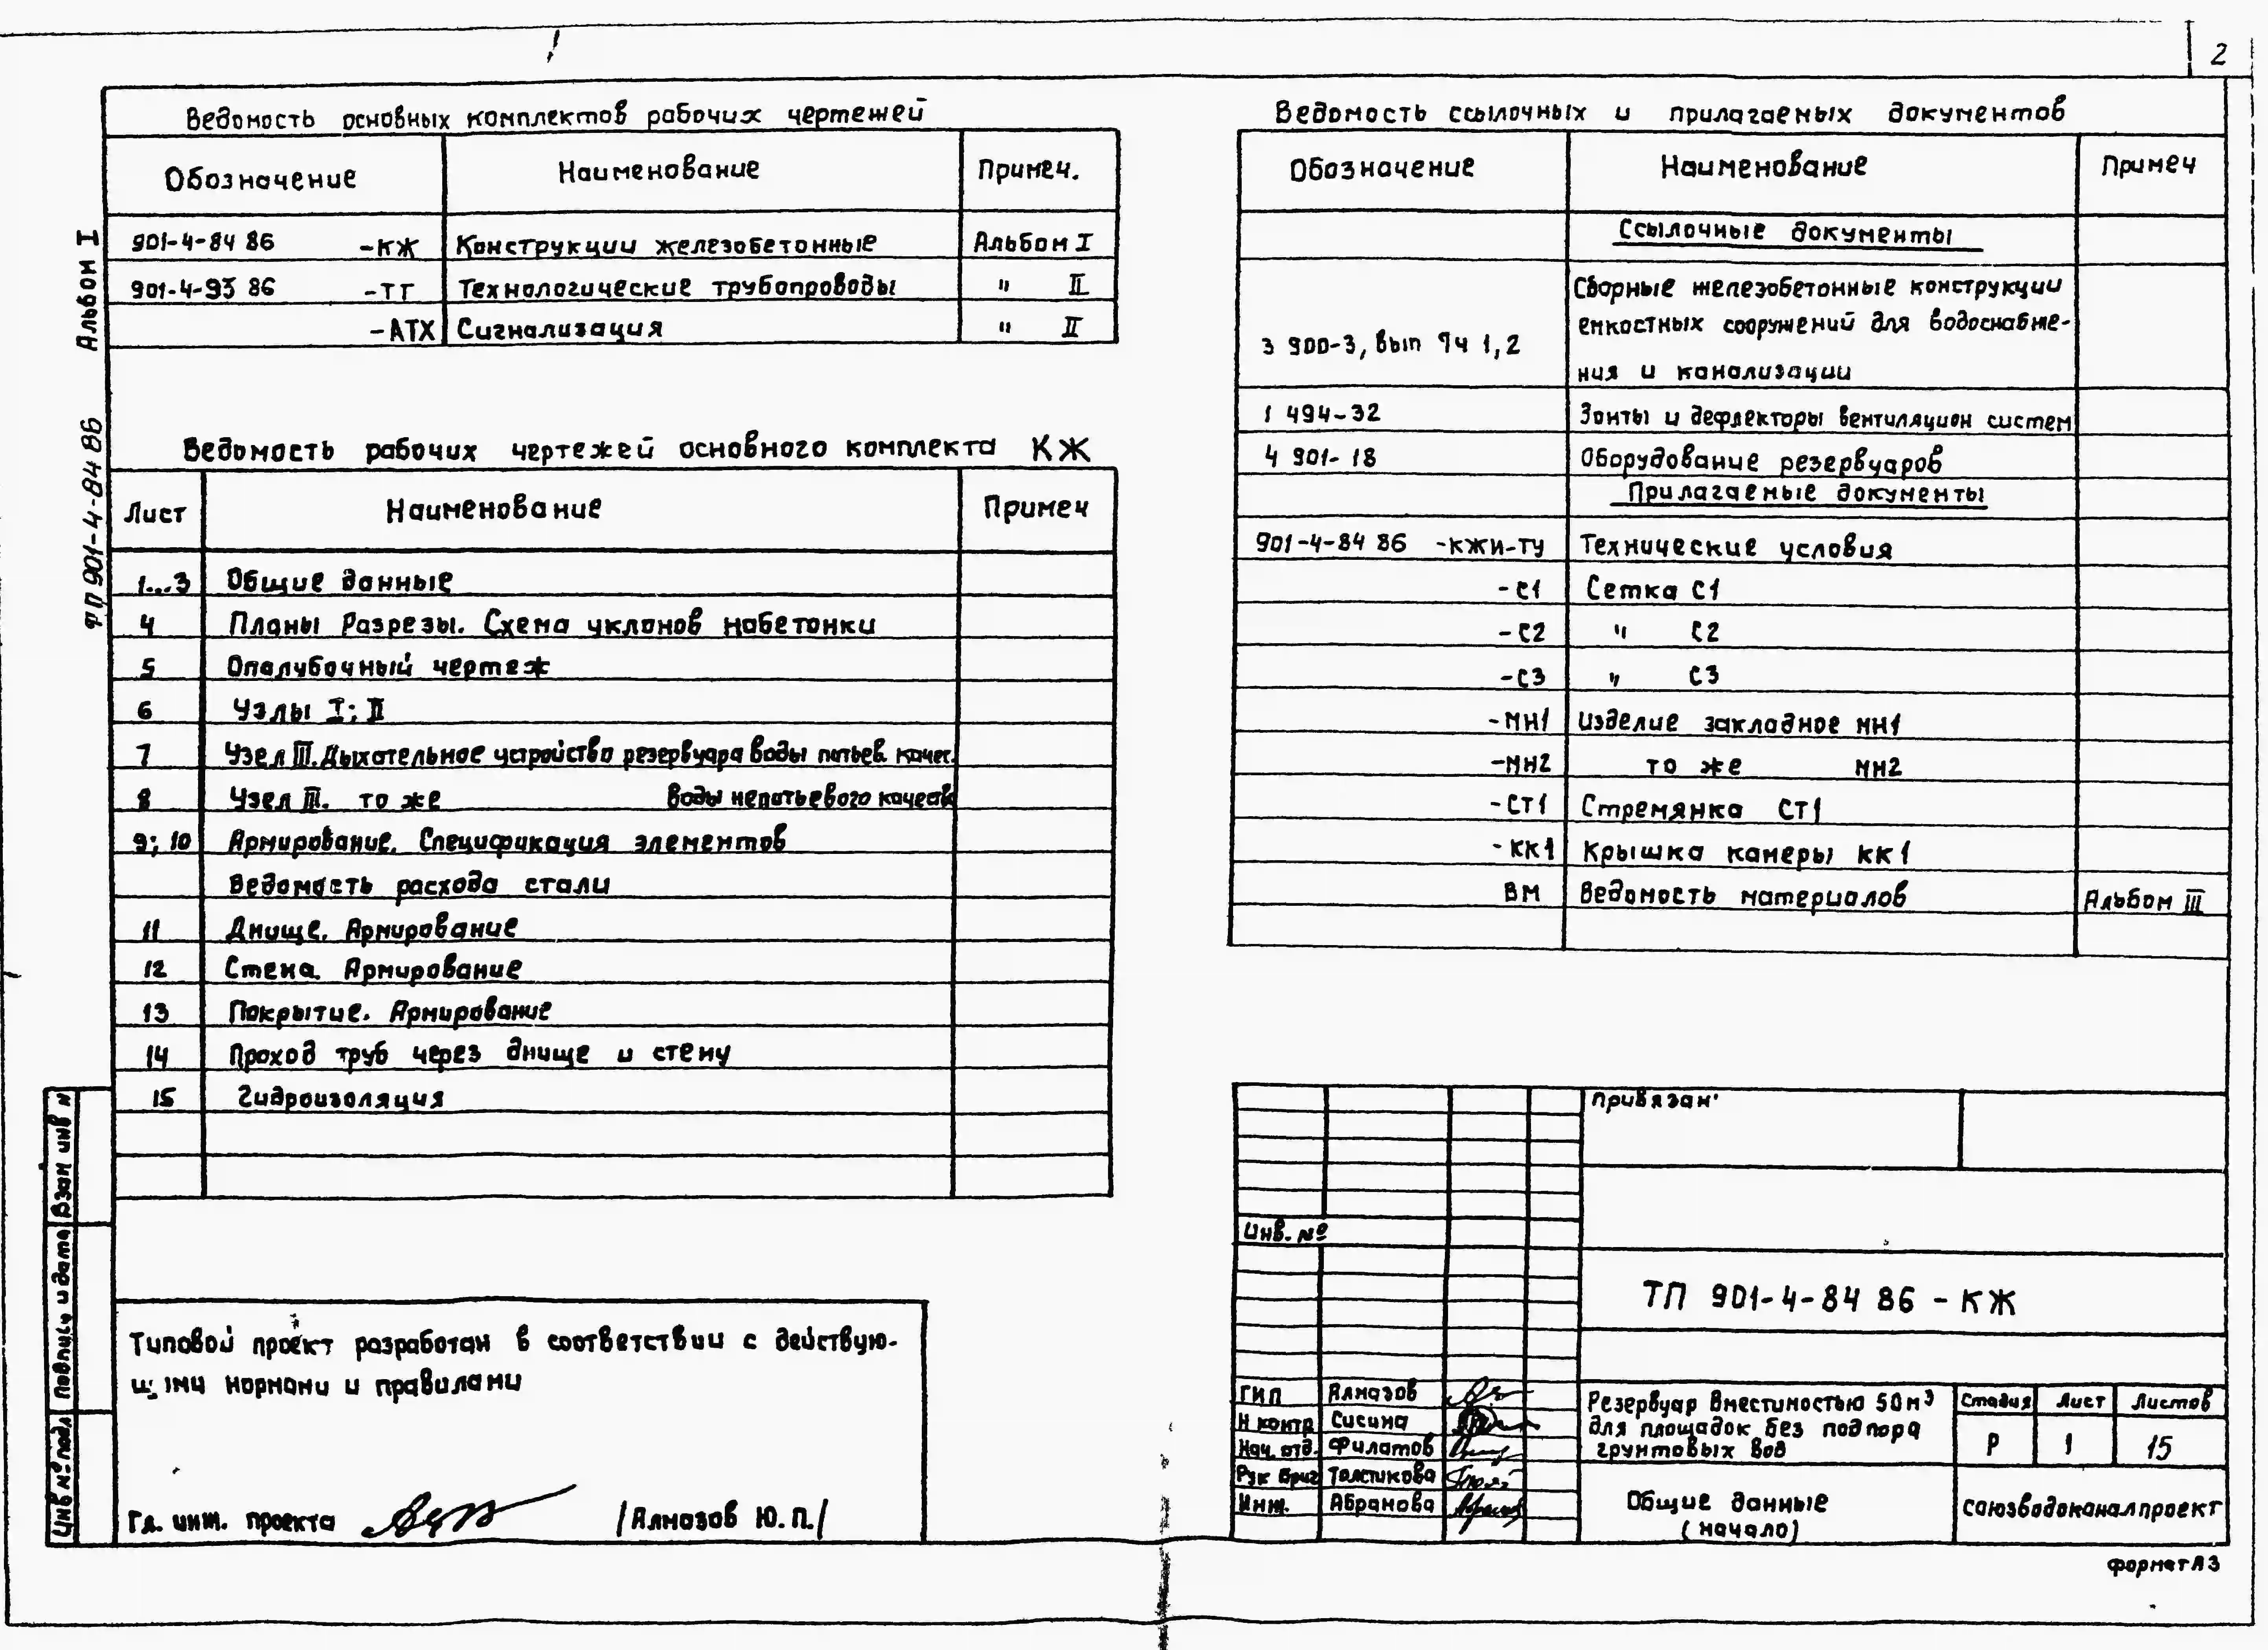 2
Ведомость основных комплектов рабочих чертежей
Обозначение Наименование Примеч.
901-4-84 86 -КЖ Конструкции железобетонные Альбом I
901-4-93 86 -ТТ Технологические трубопроводы " II
-АТХ Сигнализация " II
Альбом I
901-4-84 86
Ведомость рабочих чертежей основного комплекта КЖ
Лист Наименование Примеч
1...3 Общие данные
4 Планы Разрезы. Схема уклонов набетонки
5 Опалубочный чертеж
6 Узлы I; II
7 Узел III. Дыхательное устройство резервуара воды питьев. качес.
8 Узел III. то же воды непитьевого качеств
9; 10 Армирование. Спецификация элементов
Ведомость расхода стали
11 Днище. Армирование
12 Стена. Армирование
13 Покрытие. Армирование
14 Проход труб через днище и стену
15 Гидроизоляция
Типовой проект разработан в соответствии с действую-
щими нормами и правилами
Гл. инж. проекта /Алмазов Ю.П./
Инв № подл Подпись и дата Взам инв №
Ведомость ссылочных и прилагаемых документов
Обозначение Наименование Примеч
Ссылочные документы
Сборные железобетонные конструкции
емкостных сооружений для водоснабже-
3 900-3, вып 1,2
ния и канализации
1 494-32 Зонты и дефлекторы вентиляцион систем
4 901-18 Оборудование резервуаров
Прилагаемые документы
901-4-84 86 -КЖИ-ТУ Технические условия
-С1 Сетка С1
-С2 " С2
-С3 " С3
-МН1 Изделие закладное МН1
-МН2 то же МН2
-СТ1 Стремянка СТ1
-КК1 Крышка камеры КК1
ВМ Ведомость материалов Альбом III
Привязан
Инв. №
ТП 901-4-84 86 - КЖ
ГИП Алмазов
Н контр Сисина
Нач. отд. Филатов
Рук бриг Толстикова
Инж. Абрамова
Резервуар вместимостью 50 м³
для площадок без подпора
грунтовых вод
Стадия Лист Листов
Р 1 15
Общие данные
(начало)
союзводоканалпроект
формат А3